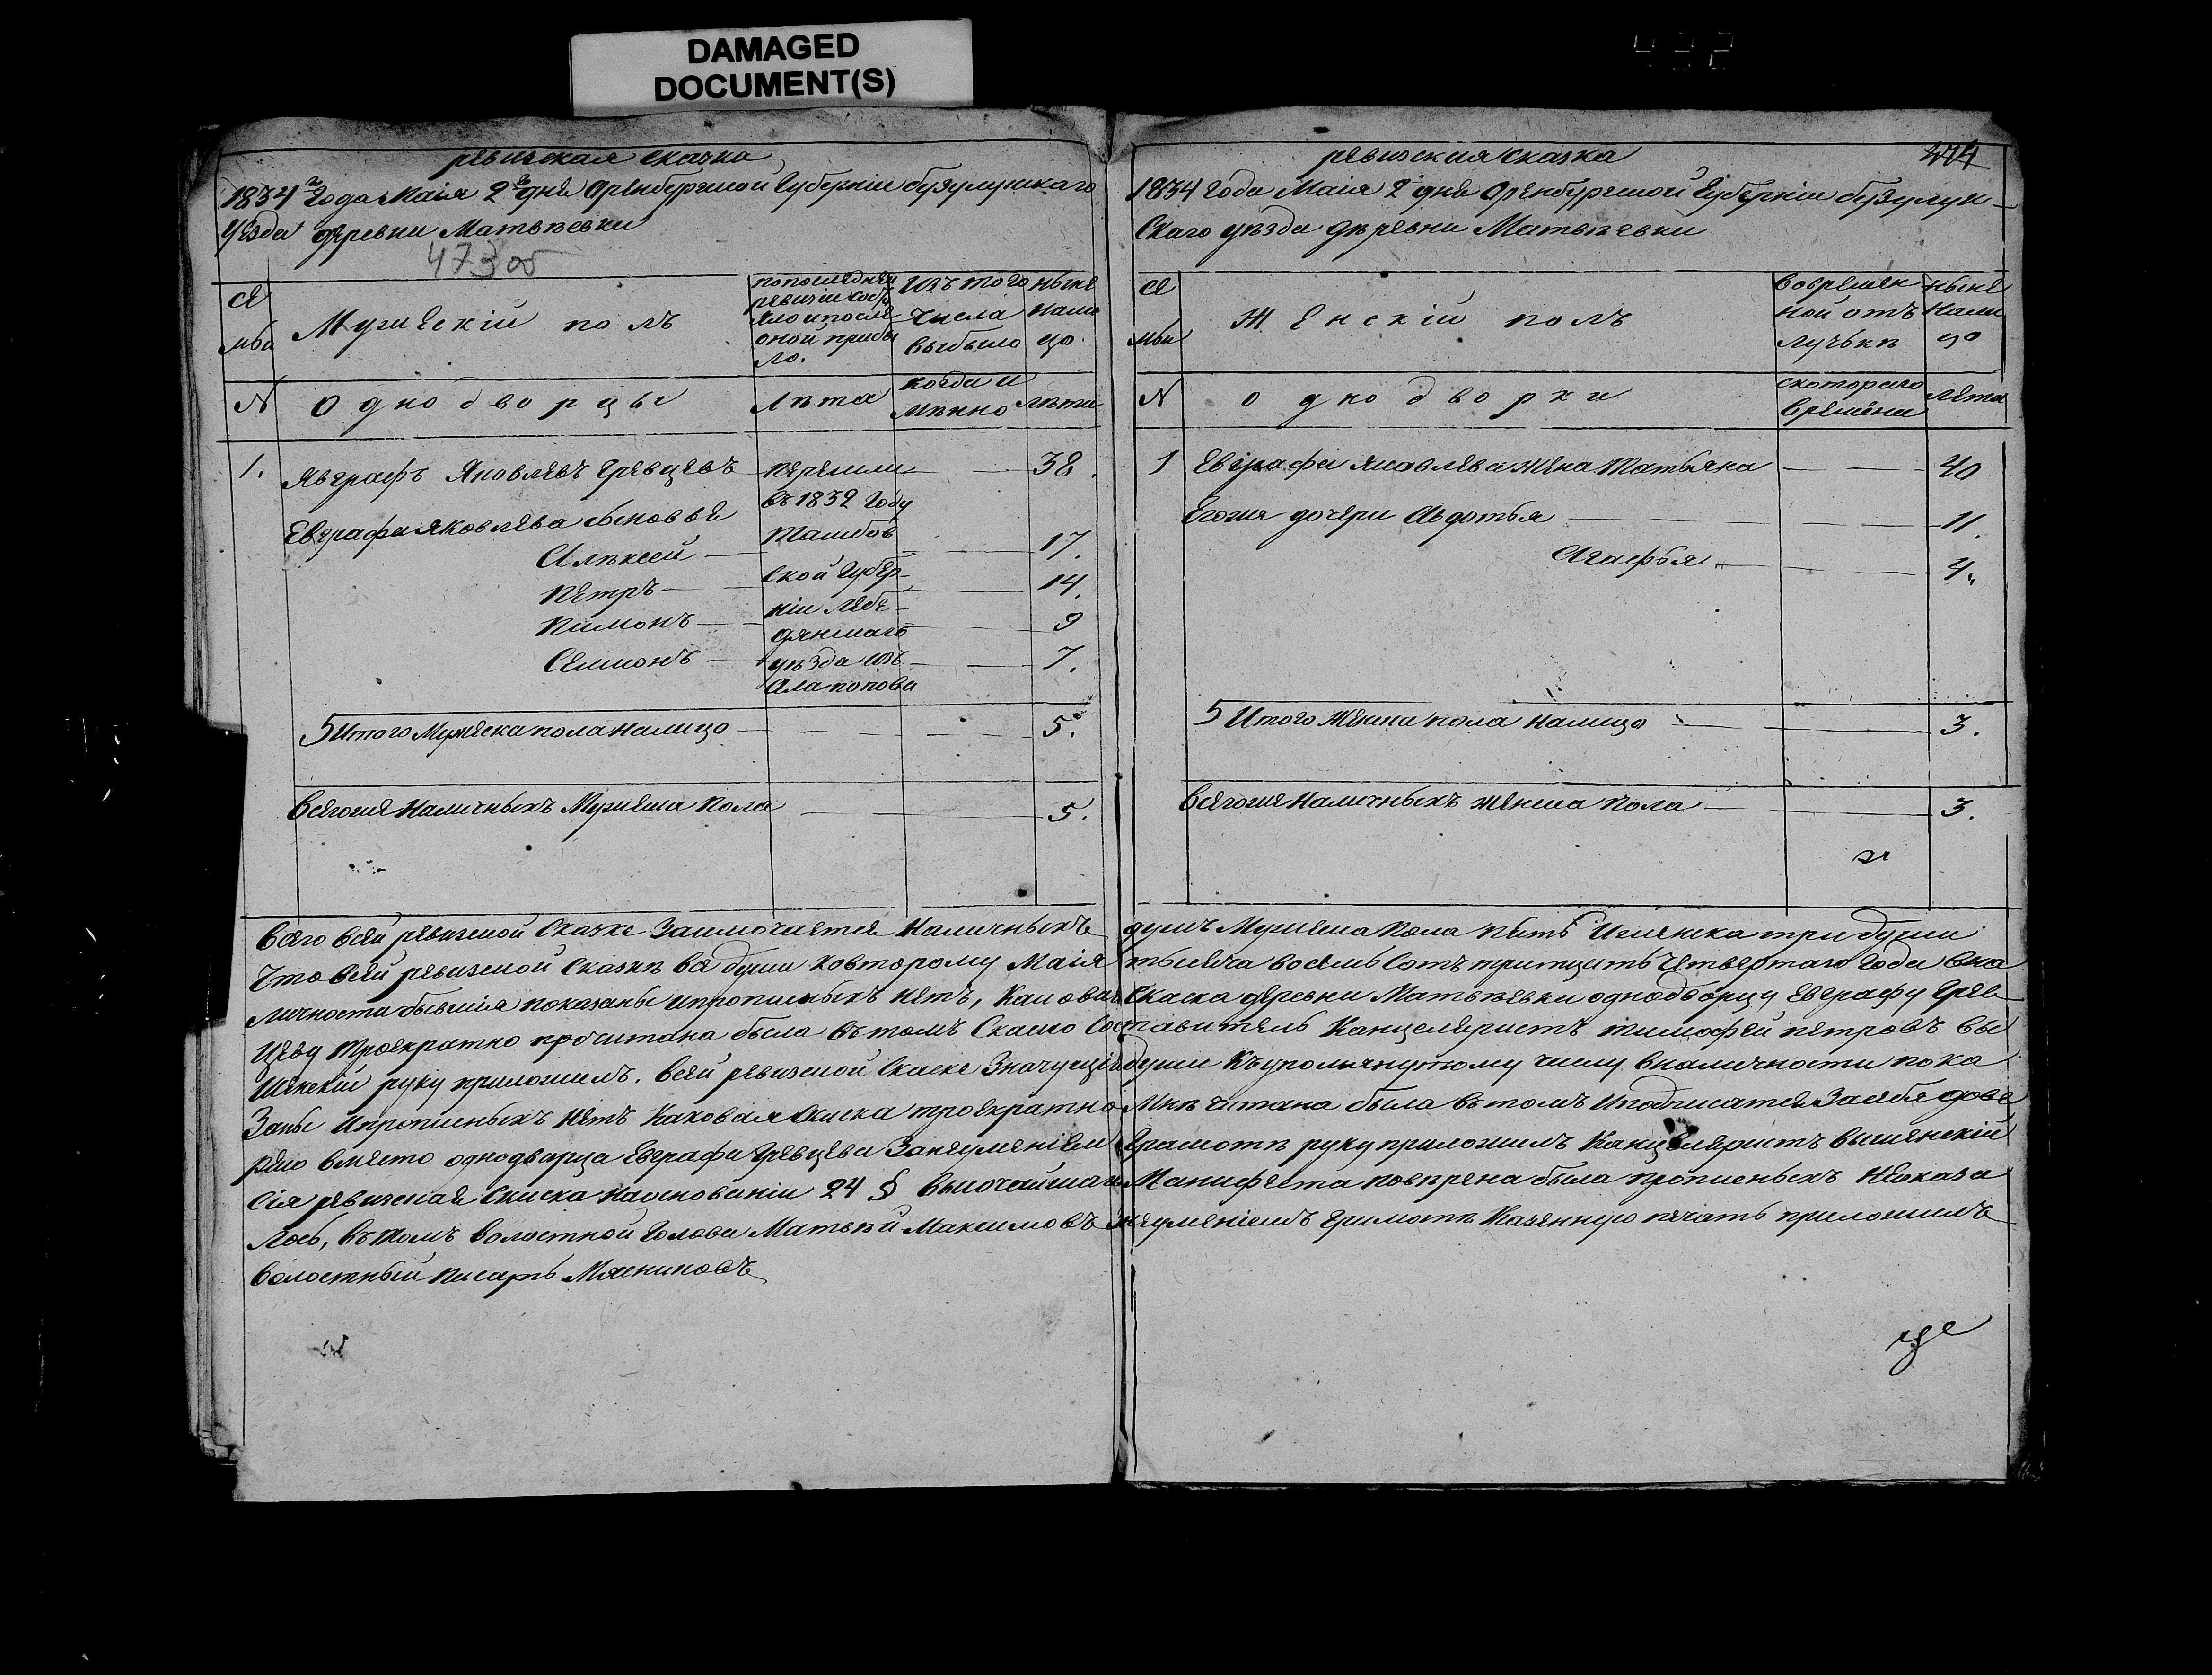 DAMAGED
DOCUMENT(S)
ревизская сказка
1834 года Маія 2 дня Оренбургской Губерніи бузулукскаго
уезда деревни Матвѣевки
473 об
се
мьи
Мужескій полъ
по последней
ревизіи состо
яло и после
оной прибы
ло.
Изъ того
числа
выбыло
ныне
нали
цо
N
Однодворцы
лѣта
когда и
лѣта
1. Явграфъ Яковлевъ Гревцевъ — 38.
перешли
въ 1832 году
Тамбов
ской губер
ніи Лебе
дянскаго
уѣзда изъ
села попова
Евграфа Яковлева сыновья
Алѣксей — 17.
Петръ — 14.
Пимонъ — 9
Семионъ — 7.
5 Итого Мужеска пола налицо — 5.
Всегоже наличныхъ Мужеска пола — 5.
ревизская сказка
474
1834 года Маія 2 дня Оренбургской Губерніи бузулук-
скаго уѣзда дѣревни Матвѣевки
се
мьи
Женскій полъ
во времен
ной отъ
лучькѣ
ныне
нали
цо
N
однодворки
с котораго
времени
лета
1 Евграфа Яковлева жена Татьяна — 40
Егоже дочери Авдотья — 11.
Агафья — 4.
5 Итого женска пола налицо — 3.
Всегоже наличныхъ женска пола — 3.
Всего всей ревизской сказке заключается наличныхъ душъ Мужеска пола пять и женска три души
Что всей ревизской сказкѣ все души ковторому Маія тысяча восемь сотъ тритцить четвертаго года вна
личности бывшія показаны и прописныхъ нетъ, скаска деревни Матвѣевки однодворцу Евграфу Грев
цеву троекратно прочитана была въ томъ скаско составитель Канцеляристъ тимофей петровъ вы
шенскій руку приложилъ. всей ревизской скаске значущіе души къ упомянутому числу вналичности пока
заны и прописныхъ нетъ каковая скиска троекратно мнѣ читана была въ томъ и подписатся за себя дове
рено вместо однодварца Евграфа Гревцева за неуменіем грамотѣ руку приложилъ Канцеляристъ вышенскій
Сія ревизская скиска на основаніи 24 § высочайшаго Манифеста повѣрена была прописныхъ неоказа
лось, въ томъ волостной голова Матвѣй Максимовъ неуменіемъ грамотѣ казенную печать приложилъ
волостный писарь Мясниковъ